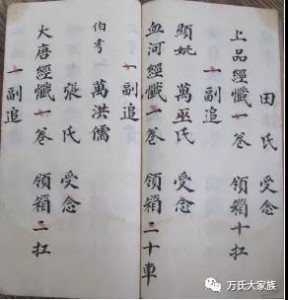 田氏 受念
上品經懺一卷 領箱十扛
一副追
顯妣 萬巫氏 受念
血河經懺一卷 領箱二十車
一副追
伯考 萬洪儒
張氏 受念
大唐經懺一卷 領箱二扛
一副追
万氏大家族